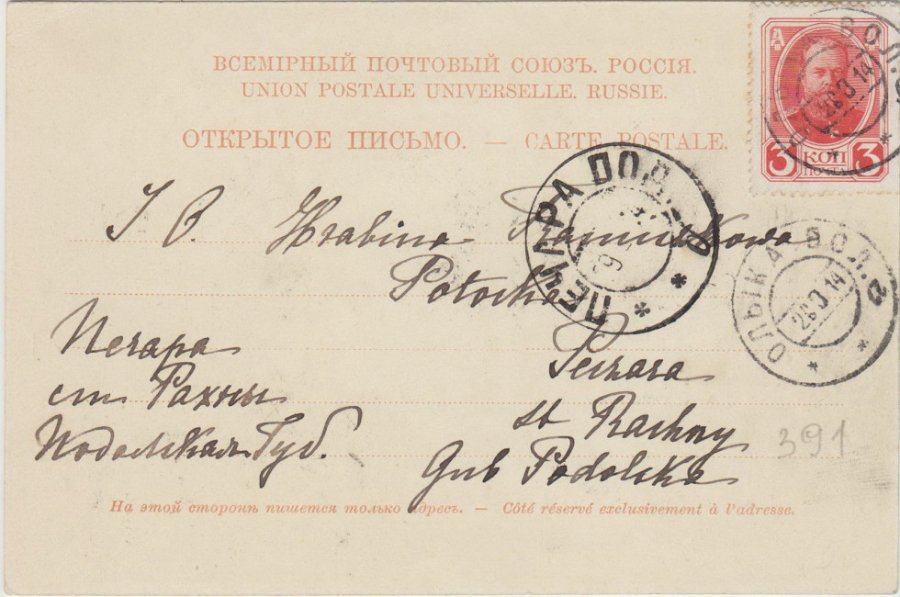 ВСЕМІРНЫЙ ПОЧТОВЫЙ СОЮЗЪ. РОССІЯ.
UNION POSTALE UNIVERSELLE. RUSSIE.
ОТКРЫТОЕ ПИСЬМО. — CARTE POSTALE.
3 КОП 3
ПЕЧАРА ПОД.
ОЛЫКА ВОЛ. 28 3 14
J. O. Hrabina
Potocka
Печара
ст Рахны
Подольская Губ.
Peczara
st Rachny
Gub Podolska
391
На этой сторонѣ пишется только адресъ. — Côté réservé exclusivement à l'adresse.